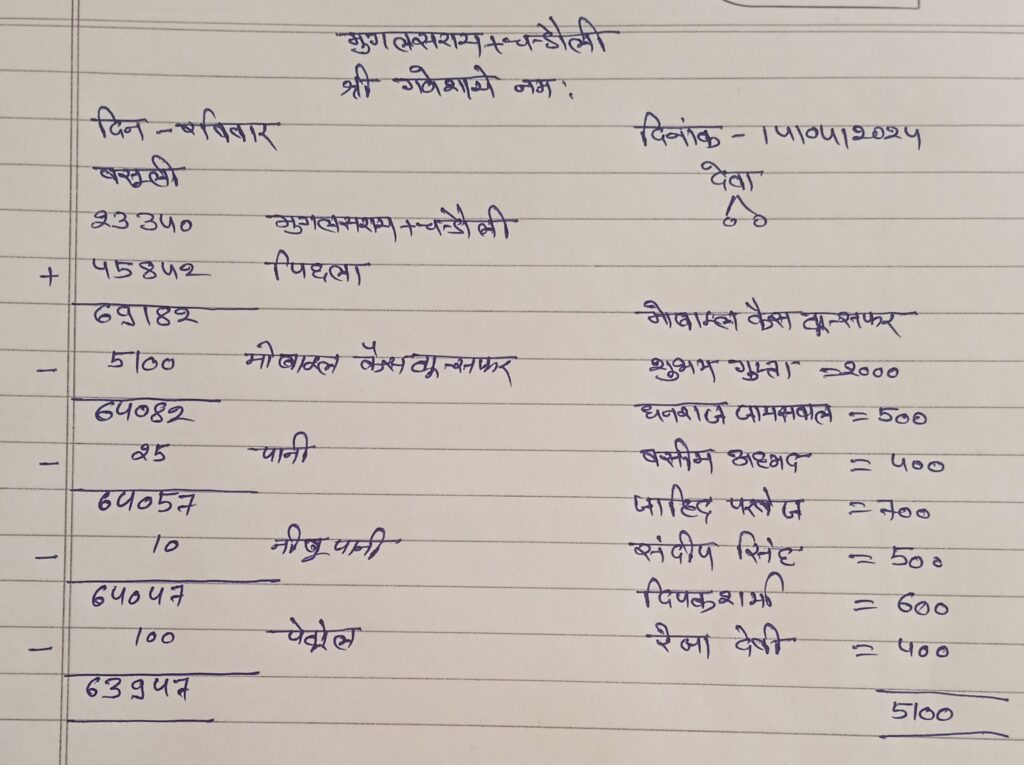 मुगलसराय+चन्डौली
श्री गणेशाये नम:
दिन - रविवार दिनांक - 14/04/2024
बसूली देवा
23340 मुगलसराय+चन्डौली
+ 45842 पिछला
69182 मोबाइल कैस ट्रान्सफर
- 5100 मोबाइल कैस ट्रान्सफर शुभम गुप्ता =2000
64082 धनराज जायसवाल = 500
- 25 पानी बसीम अहमद = 400
64057 जाहिद परवेज = 700
- 10 नीबू पानी संदीप सिंह = 500
64047 दिपक शर्मा = 600
- 100 पेट्रोल रेजा देवी = 400
63947
5100